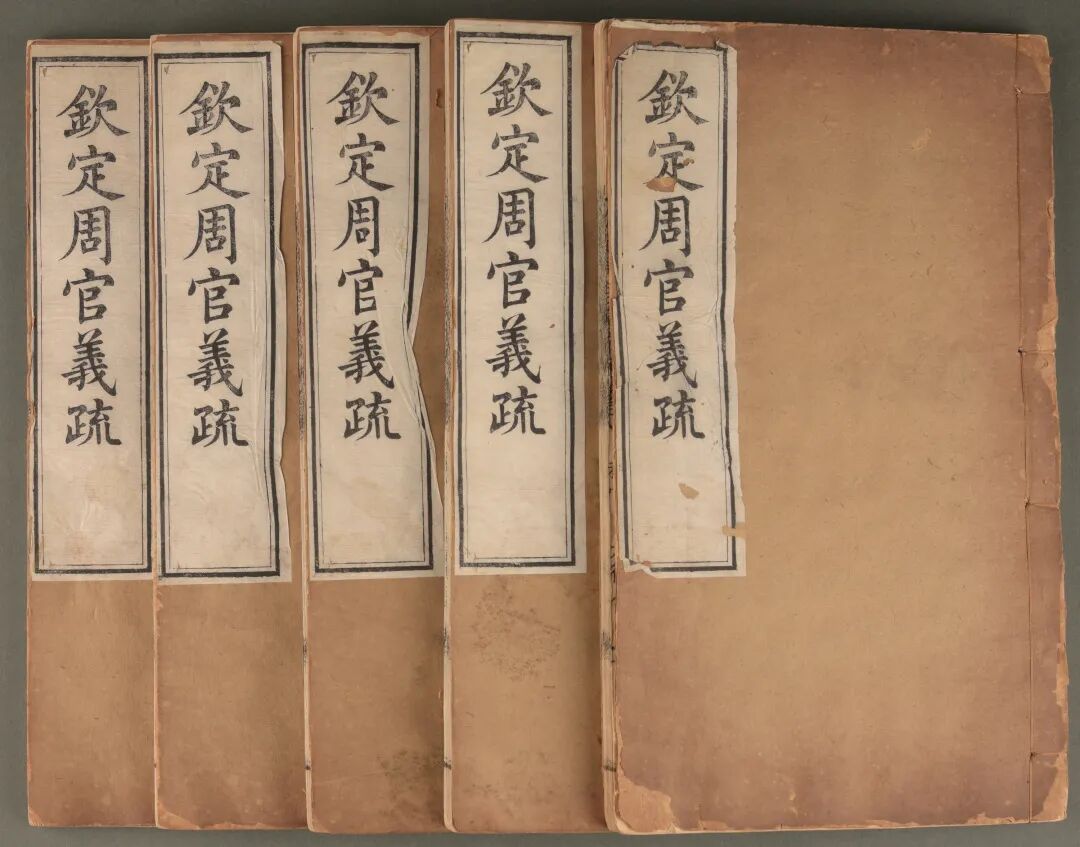 欽定周官義疏
欽定周官義疏
欽定周官義疏
欽定周官義疏
欽定周官義疏